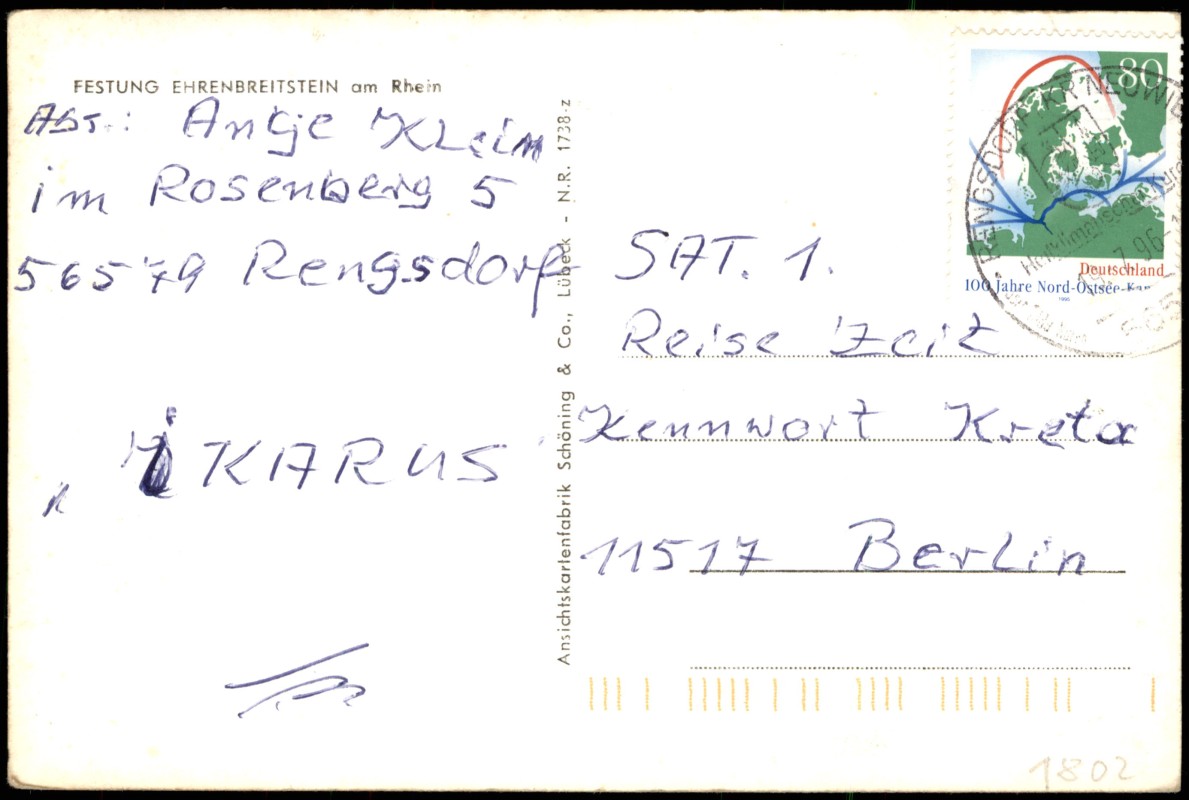 FESTUNG EHRENBREITSTEIN am Rhein
Abs.: Antje Klein
im Rosenberg 5
56579 Rengsdorf
„ IKARUS
Ansichtskartenfabrik Schöning & Co., Lübeck - N.R. 1738-z
80
Deutschland
100 Jahre Nord-Ostsee-Kan
1995
RENGSDORF KR NEUWIE
Heilklimatischer
19.7.96-1
565
SAT. 1.
Reise Zeit
Kennwort Kreta
11517 Berlin
1802